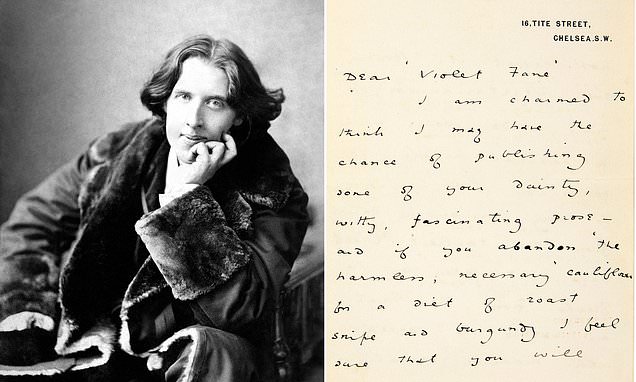 16, TITE STREET,
CHELSEA. S.W.
Dear 'Violet Fane'
I am charmed to
think I may have the
chance of publishing
some of your dainty,
witty, fascinating prose –
and if you abandon 'the
harmless, necessary' cauliflower
for a diet of roast
snipe and burgundy I feel
sure that you will